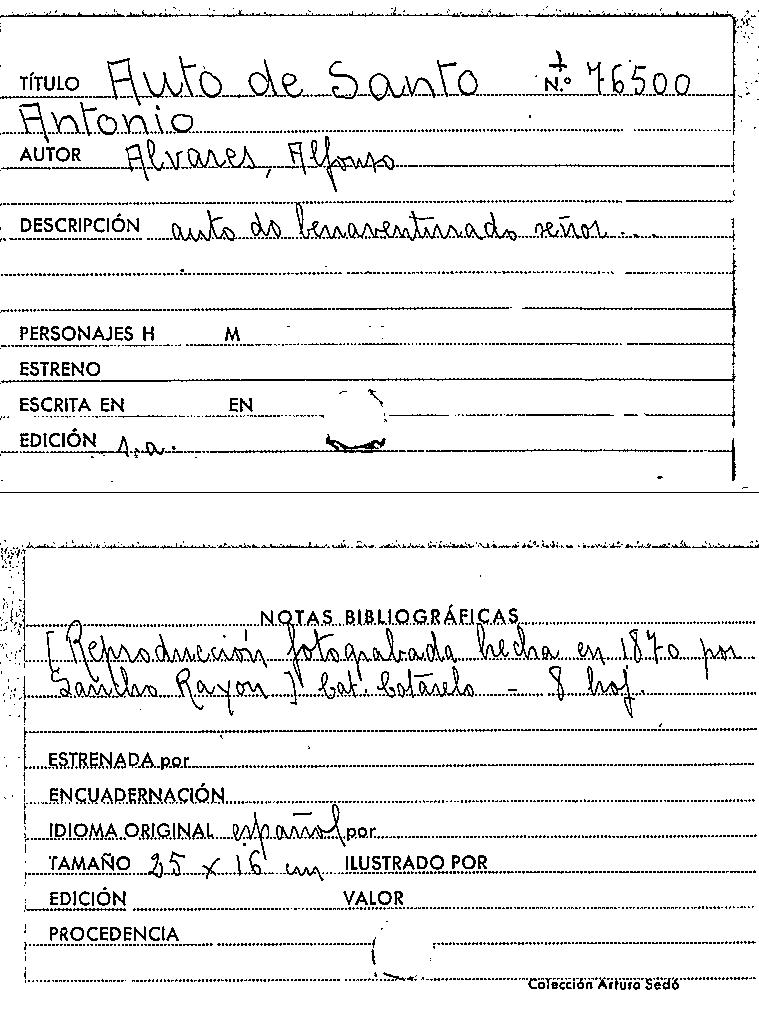 TÍTULO Auto de Santo + N.º 76500
Antonio
AUTOR Alvares, Alfonso
DESCRIPCIÓN auto do benaventurado señor...
PERSONAJES H M
ESTRENO
ESCRITA EN EN
EDICIÓN s.a.
NOTAS BIBLIOGRÁFICAS
[Reproducción fotograbada hecha en 1870 por
Sancho Rayon] Cat. Cotarelo - 8 hoj.
ESTRENADA por
ENCUADERNACIÓN
IDIOMA ORIGINAL español por
TAMAÑO 25 x 16 cm ILUSTRADO POR
EDICIÓN VALOR
PROCEDENCIA
Colección Arturo Sedó